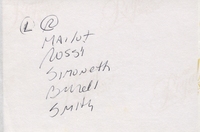 L R
Mailot
Rossi
Simoneth
Burell
Smith